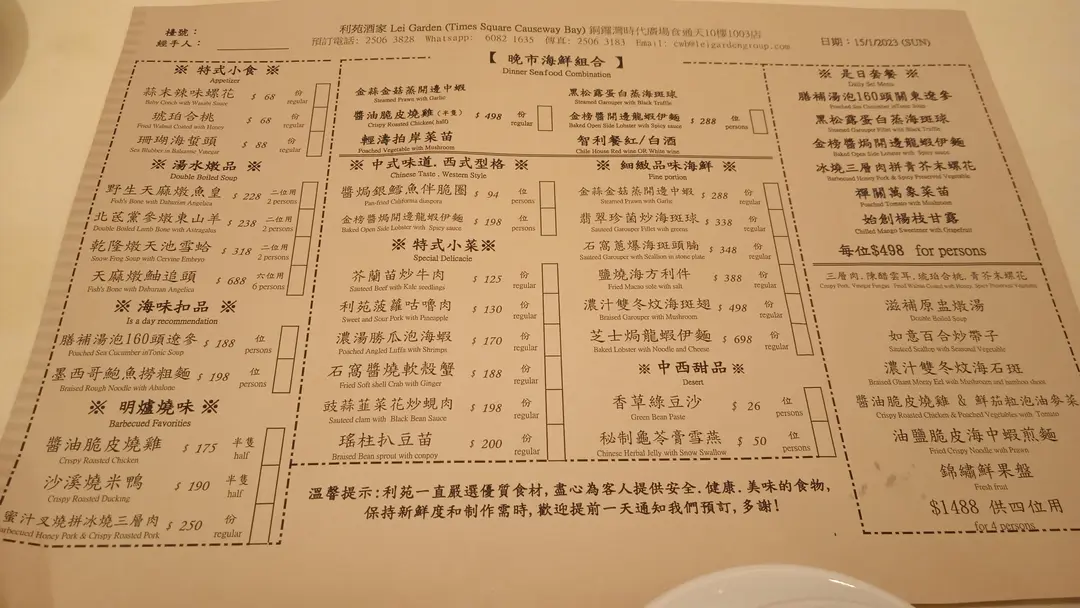 檯號：
經手人：
利苑酒家 Lei Garden (Times Square Causeway Bay) 銅鑼灣時代廣場食通天10樓1003店
預訂電話: 2506 3828 Whatsapp: 6082 1635 傳真: 2506 3183 Email: cwb@leigardengroup.com
日期：15/1/2023 (SUN)
※ 特式小食 ※
Appetizer
蒜末辣味螺花 $ 68 份
Baby Conch with Wasabi Sauce regular
琥珀合桃 $ 68 份
Fried Walnut Coated with Honey regular
珊瑚海蜇頭 $ 88 份
Sea Blubber in Balsamic Vinegar regular
※ 湯水燉品 ※
Double Boiled Soup
野生天麻燉魚皇 $ 228 二位用
Fish's Bone with Dahurian Angelica 2 persons
北芪黨參燉東山羊 $ 238 二位用
Double Boiled Lamb Bone with Astragalus 2 persons
乾隆燉天池雪蛤 $ 318 二位用
Snow Frog Soup with Cervine Embryo 2 persons
天麻燉鮋追頭 $ 688 六位用
Fish's Bone with Dahurian Angelica 6 persons
※ 海味扣品 ※
Is a day recommendation
膳補湯泡160頭遼參 $ 188 位
Poached Sea Cucumber inTonic Soup persons
墨西哥鮑魚撈粗麵 $ 198 位
Braised Rough Noodle with Abalone persons
※ 明爐燒味 ※
Barbecued Favorities
醬油脆皮燒雞 $ 175 半隻
Crispy Roasted Chicken half
沙溪燒米鴨 $ 190 半隻
Crispy Roasted Ducking half
蜜汁叉燒拼冰燒三層肉 $ 250 份
Barbecued Honey Pork & Crispy Roasted Pork regular
【 晚市海鮮組合 】
Dinner Seafood Combination
金蒜金菇蒸開邊中蝦
Steamed Prawn with Garlic
醬油脆皮燒雞 (半隻) $ 498 份
Crispy Roasted Chicken( half) regular
輕濤拍岸菜苗
Poached Vegetable with Mushroom
黑松露蛋白蒸海斑球
Steamed Garouper with Black Truffle
金榜醬焗開邊龍蝦伊麵 $ 288 位
Baked Open Side Lobster with Spicy sauce persons
智利餐紅/白酒
Chile House Red wine OR White wine
※ 中式味道．西式型格 ※
Chinese Taste , Western Style
醬焗銀鱈魚伴脆圈 $ 94 位
Pan-fried California diaspora persons
金榜醬焗開邊龍蝦伊麵 $ 198 位
Baked Open Side Lobster with Spicy sauce persons
※ 特式小菜※
Special Delicacie
芥蘭苗炒牛肉 $ 125 份
Sauteed Beef with Kale seedlings regular
利苑菠蘿咕嚕肉 $ 130 份
Sweet and Sour Pork with Pineapple regular
濃湯勝瓜泡海蝦 $ 170 份
Poached Angled Luffa with Shrimps regular
石窩醬燒軟殼蟹 $ 188 份
Fried Soft shell Crab with Ginger regular
豉蒜韮菜花炒蜆肉 $ 198 份
Sauteed clam with Black Bean Sauce regular
瑤柱扒豆苗 $ 200 份
Braised Bean sprout with conpoy regular
※ 細緻品味海鮮 ※
Fine portion
金蒜金菇蒸開邊中蝦 $ 288 份
Steamed Prawn with Garlic regular
翡翠珍菌炒海斑球 $ 338 份
Sauteed Garouper Fillet with greens regular
石窩蔥爆海斑頭腩 $ 348 份
Sauteed Garouper with Scallion in stone plate regular
鹽燒海方利件 $ 388 份
Fried Macao sole with salt regular
濃汁雙冬炆海斑翅 $ 498 份
Braised Garouper with Mushroom regular
芝士焗龍蝦伊麵 $ 698 份
Baked Lobster with Noodle and Cheese regular
※ 中西甜品 ※
Desert
香草綠豆沙 $ 26 位
Green Bean Paste persons
秘制龜苓膏雪燕 $ 50 位
Chinese Herbal Jelly with Snow Swallow persons
溫馨提示:利苑一直嚴選優質食材,盡心為客人提供安全.健康.美味的食物,
保持新鮮度和制作需時,歡迎提前一天通知我們預訂,多謝!
※ 是日套餐 ※
Daily Set Menu
膳補湯泡160頭關東遼參
Poached Sea Cucumber inTonic Soup
黑松露蛋白蒸海斑球
Steamed Garouper Fillet with Black Truffle
金榜醬焗開邊龍蝦伊麵
Baked Open Side Lobster with Spicy sauce
冰燒三層肉拼青芥末螺花
Barbecued Honey Pork & Spicy Preserved Vegetable
禪關萬象菜苗
Poached Tomato with Mushroom
始創楊枝甘露
Chilled Mango Sweetener with Grapefruit
每位$498 for persons
三層肉.陳醋雲耳.琥珀合桃.青芥末螺花
Crispy Pork, Vinegar Fungus, Fried Walnut Coated with Honey, Spicy Preserved Vegetable
滋補原盅燉湯
Double Boiled Soup
如意百合炒帶子
Sauteed Scallop with Seasonal Vegetable
濃汁雙冬炆海石斑
Braised Giant Moray Eel with Mushroom and bamboo shoot
醬油脆皮燒雞 & 鮮茄粒泡油麥菜
Crispy Roasted Chicken & Pouched Vegetables with Tomato
油鹽脆皮海中蝦煎麵
Fried Crispy Noodle with Prawn
錦繡鮮果盤
Fresh fruit
$1488 供四位用
for 4 persons